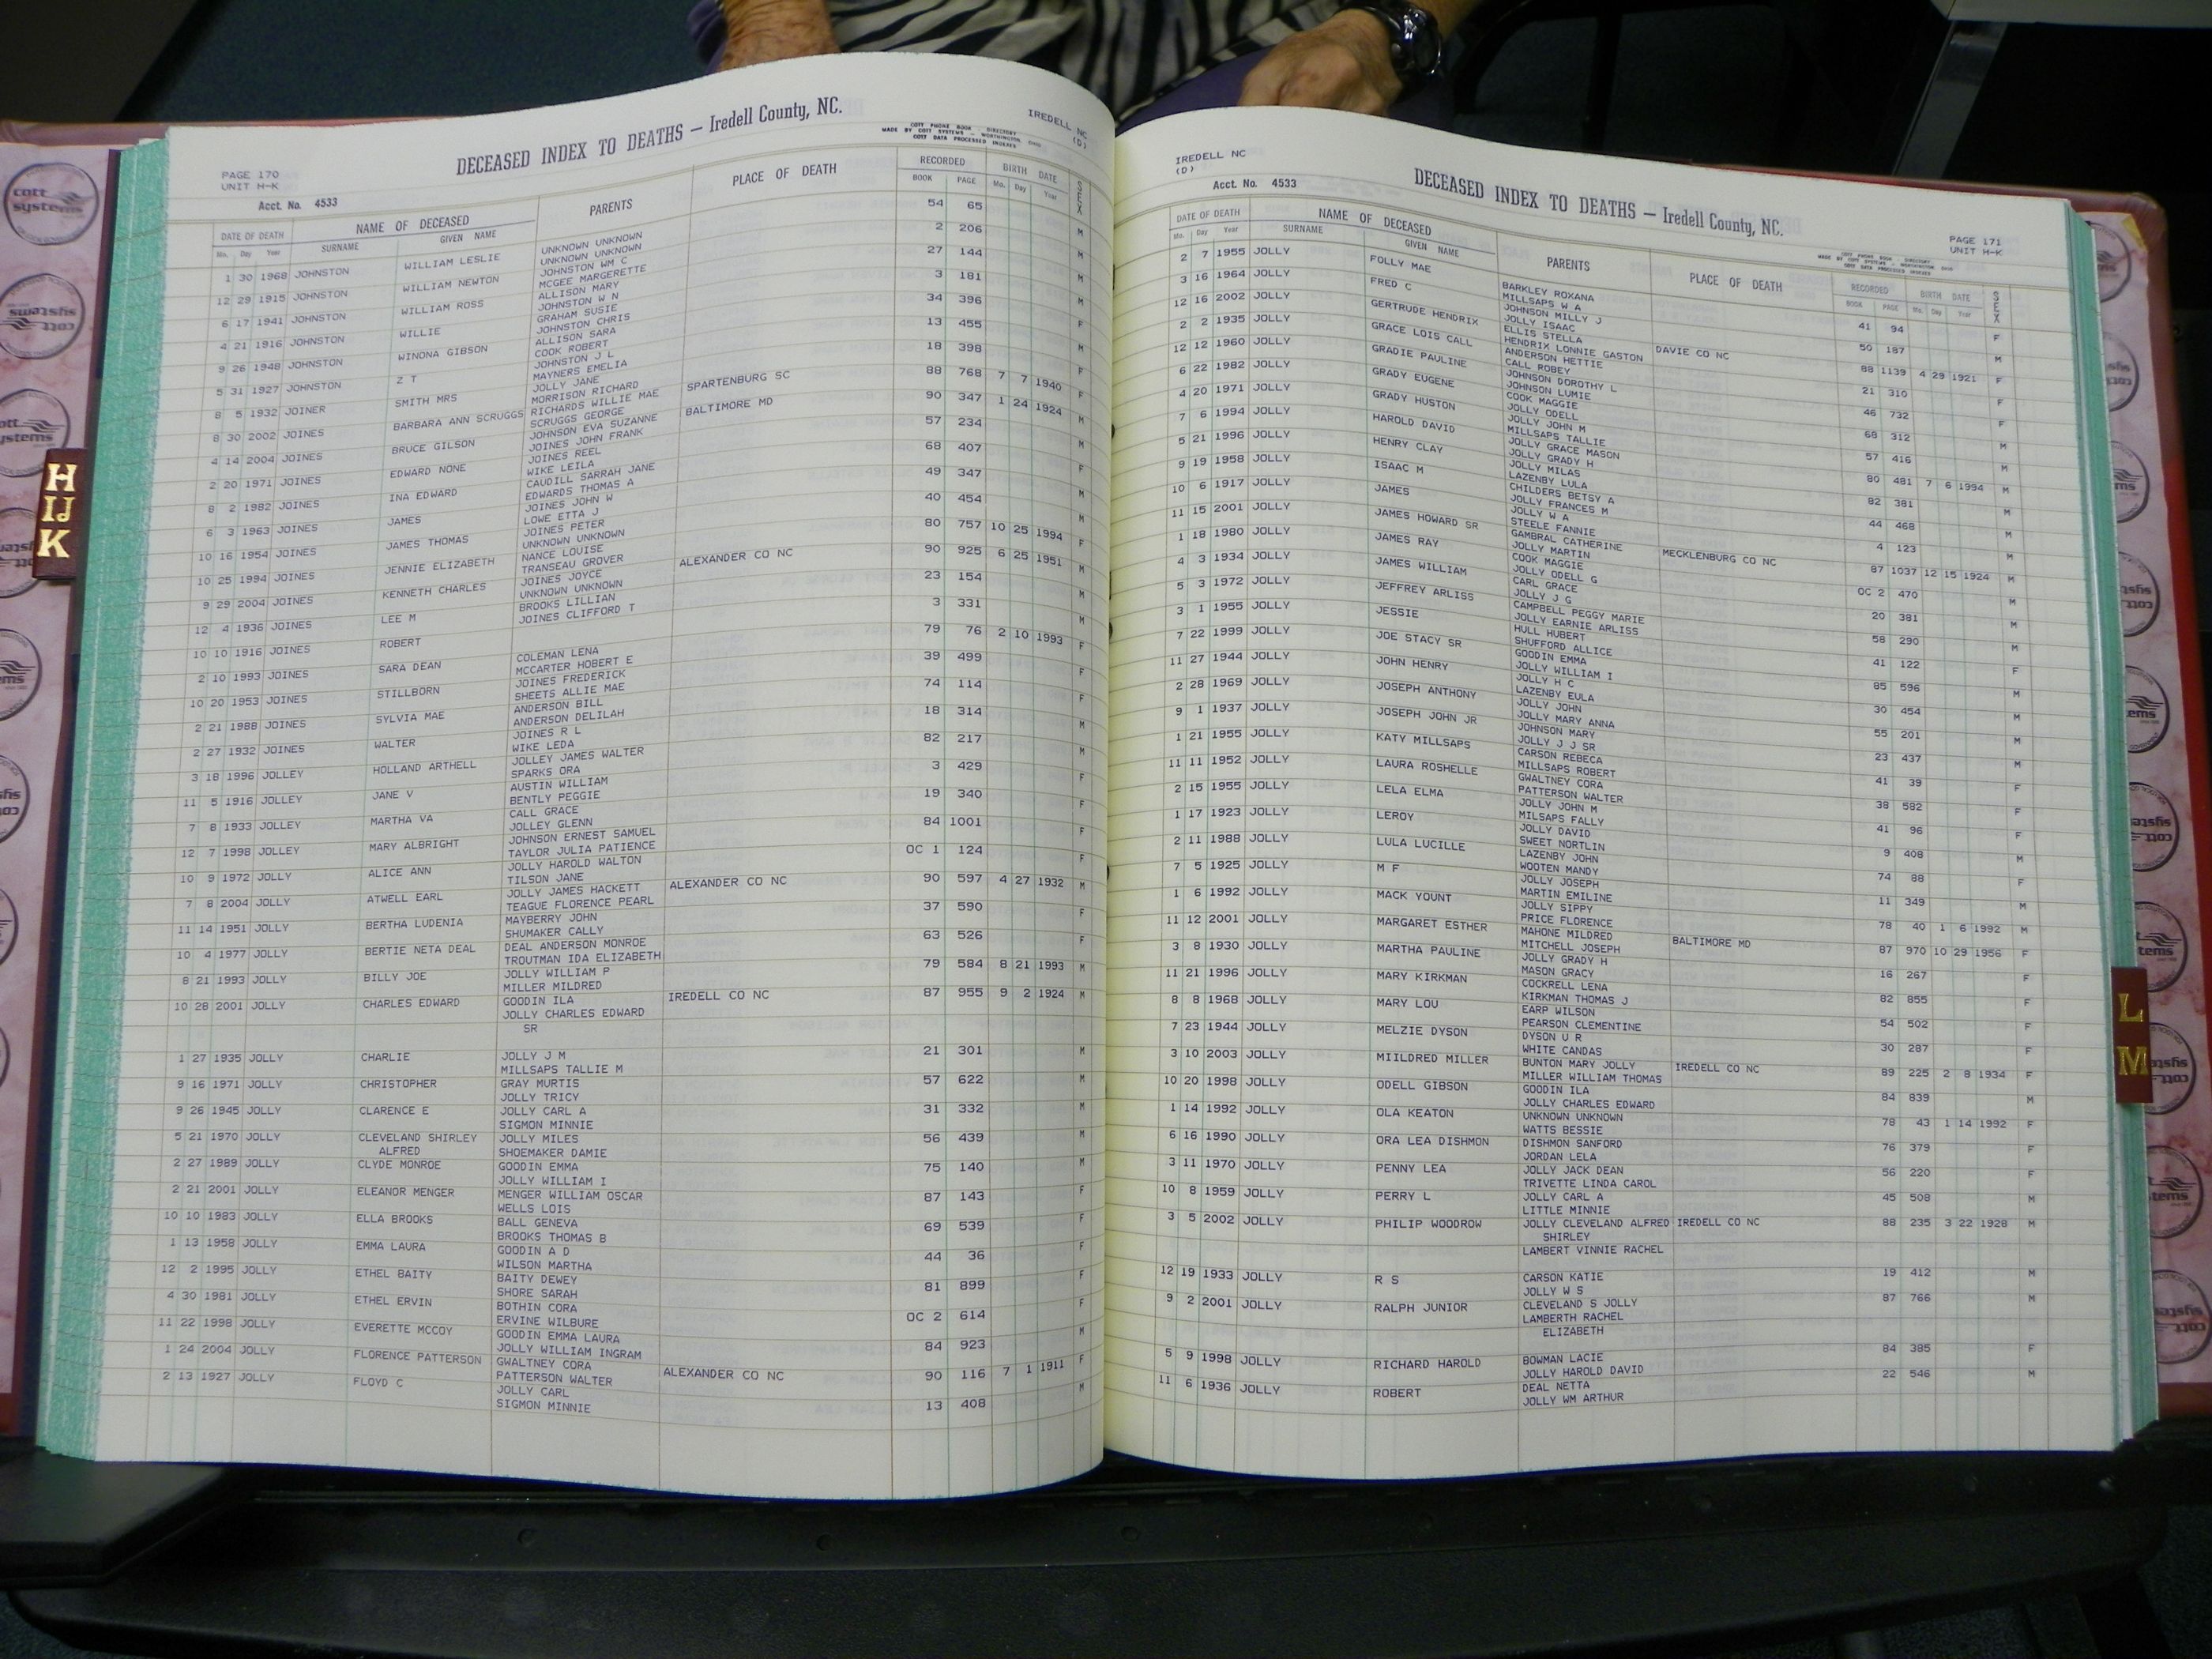 DECEASED INDEX TO DEATHS — Iredell County, NC.
IREDELL NC
(D)
COTT PHONE BOOK - DIRECTORY
MADE BY COTT SYSTEMS - WORTHINGTON, OHIO
COTT DATA PROCESSED INDEXES
PAGE 170
UNIT H-K
Acct. No. 4533
DATE OF DEATH NAME OF DECEASED PARENTS PLACE OF DEATH RECORDED BIRTH DATE SEX
Mo. Day Year SURNAME GIVEN NAME BOOK PAGE Mo. Day Year
1 30 1968 JOHNSTON WILLIAM LESLIE UNKNOWN UNKNOWN 54 65 M
UNKNOWN UNKNOWN
12 29 1915 JOHNSTON WILLIAM NEWTON JOHNSTON WM C 2 206 M
MCGEE MARGERETTE
6 17 1941 JOHNSTON WILLIAM ROSS ALLISON MARY 27 144 M
JOHNSTON W N
4 21 1916 JOHNSTON WILLIE GRAHAM SUSIE 3 181 F
JOHNSTON CHRIS
9 26 1948 JOHNSTON WINONA GIBSON ALLISON SARA 34 396
COOK ROBERT
5 31 1927 JOHNSTON Z T JOHNSTON J L 13 455
MAYNERS EMELIA
8 5 1932 JOINER SMITH MRS JOLLY JANE 18 398
MORRISON RICHARD
8 30 2002 JOINES BARBARA ANN SCRUGGS RICHARDS WILLIE MAE SPARTENBURG SC 88 768 7 7 1940
SCRUGGS GEORGE
4 14 2004 JOINES BRUCE GILSON JOHNSON EVA SUZANNE BALTIMORE MD 90 347 1 24 1924
JOINES JOHN FRANK
2 20 1971 JOINES EDWARD NONE JOINES REEL 57 234
WIKE LEILA
8 2 1982 JOINES INA EDWARD CAUDILL SARRAH JANE 68 407
EDWARDS THOMAS A
6 3 1963 JOINES JAMES JOINES JOHN W 49 347
LOWE ETTA J
10 16 1954 JOINES JAMES THOMAS JOINES PETER 40 454
UNKNOWN UNKNOWN
10 25 1994 JOINES JENNIE ELIZABETH NANCE LOUISE 80 757 10 25 1994
TRANSEAU GROVER
9 29 2004 JOINES KENNETH CHARLES JOINES JOYCE ALEXANDER CO NC 90 925 6 25 1951
UNKNOWN UNKNOWN
12 4 1936 JOINES LEE M BROOKS LILLIAN 23 154
JOINES CLIFFORD T
10 10 1916 JOINES ROBERT 3 331
2 10 1993 JOINES SARA DEAN COLEMAN LENA 79 76 2 10 1993
MCCARTER HOBERT E
10 20 1953 JOINES STILLBORN JOINES FREDERICK 39 499
SHEETS ALLIE MAE
2 21 1988 JOINES SYLVIA MAE ANDERSON BILL 74 114
ANDERSON DELILAH
2 27 1932 JOINES WALTER JOINES R L 18 314
WIKE LEDA
3 18 1996 JOLLEY HOLLAND ARTHELL JOLLEY JAMES WALTER 82 217
SPARKS ORA
11 5 1916 JOLLEY JANE V AUSTIN WILLIAM 3 429
BENTLY PEGGIE
7 8 1933 JOLLEY MARTHA VA CALL GRACE 19 340
JOLLEY GLENN
12 7 1998 JOLLEY MARY ALBRIGHT JOHNSON ERNEST SAMUEL 84 1001
TAYLOR JULIA PATIENCE
10 9 1972 JOLLY ALICE ANN JOLLY HAROLD WALTON OC 1 124 F
TILSON JANE
7 8 2004 JOLLY ATWELL EARL JOLLY JAMES HACKETT ALEXANDER CO NC 90 597 4 27 1932 M
TEAGUE FLORENCE PEARL
11 14 1951 JOLLY BERTHA LUDENIA MAYBERRY JOHN 37 590 F
SHUMAKER CALLY
10 4 1977 JOLLY BERTIE NETA DEAL DEAL ANDERSON MONROE 63 526 F
TROUTMAN IDA ELIZABETH
8 21 1993 JOLLY BILLY JOE JOLLY WILLIAM P 79 584 8 21 1993 M
MILLER MILDRED
10 28 2001 JOLLY CHARLES EDWARD GOODIN ILA IREDELL CO NC 87 955 9 2 1924 M
JOLLY CHARLES EDWARD
SR
1 27 1935 JOLLY CHARLIE JOLLY J M 21 301 M
MILLSAPS TALLIE M
9 16 1971 JOLLY CHRISTOPHER GRAY MURTIS 57 622 M
JOLLY TRICY
9 26 1945 JOLLY CLARENCE E JOLLY CARL A 31 332 M
SIGMON MINNIE
5 21 1970 JOLLY CLEVELAND SHIRLEY JOLLY MILES 56 439 M
ALFRED SHOEMAKER DAMIE
2 27 1989 JOLLY CLYDE MONROE GOODIN EMMA 75 140 M
JOLLY WILLIAM I
2 21 2001 JOLLY ELEANOR MENGER MENGER WILLIAM OSCAR 87 143 F
WELLS LOIS
10 10 1983 JOLLY ELLA BROOKS BALL GENEVA 69 539 F
BROOKS THOMAS B
1 13 1958 JOLLY EMMA LAURA GOODIN A D 44 36 F
WILSON MARTHA
12 2 1995 JOLLY ETHEL BAITY BAITY DEWEY 81 899 F
SHORE SARAH
4 30 1981 JOLLY ETHEL ERVIN BOTHIN CORA OC 2 614 F
ERVINE WILBURE
11 22 1998 JOLLY EVERETTE MCCOY GOODIN EMMA LAURA 84 923 M
JOLLY WILLIAM INGRAM
1 24 2004 JOLLY FLORENCE PATTERSON GWALTNEY CORA ALEXANDER CO NC 90 116 7 1 1911 F
PATTERSON WALTER
2 13 1927 JOLLY FLOYD C JOLLY CARL 13 408 M
SIGMON MINNIE
IREDELL NC
(D)
Acct. No. 4533
DECEASED INDEX TO DEATHS — Iredell County, NC.
PAGE 171
UNIT H-K
DATE OF DEATH NAME OF DECEASED PARENTS PLACE OF DEATH RECORDED BIRTH DATE SEX
Mo. Day Year SURNAME GIVEN NAME BOOK PAGE Mo. Day Year
2 7 1955 JOLLY FOLLY MAE BARKLEY ROXANA 41 94 F
MILLSAPS W A
3 16 1964 JOLLY FRED C JOHNSON MILLY J 50 187 M
JOLLY ISAAC
12 16 2002 JOLLY GERTRUDE HENDRIX ELLIS STELLA DAVIE CO NC 88 1139 4 29 1921 F
HENDRIX LONNIE GASTON
2 2 1935 JOLLY GRACE LOIS CALL ANDERSON HETTIE 21 310 F
CALL ROBEY
12 12 1960 JOLLY GRADIE PAULINE JOHNSON DOROTHY L 46 732
JOHNSON LUMIE
6 22 1982 JOLLY GRADY EUGENE COOK MAGGIE 68 312 M
JOLLY ODELL
4 20 1971 JOLLY GRADY HUSTON JOLLY JOHN M 57 416 M
MILLSAPS TALLIE
7 6 1994 JOLLY HAROLD DAVID JOLLY GRACE MASON 80 481 7 6 1994 M
JOLLY GRADY H
5 21 1996 JOLLY HENRY CLAY JOLLY MILAS 82 381 M
LAZENBY LULA
9 19 1958 JOLLY ISAAC M CHILDERS BETSY A 44 468 M
JOLLY FRANCES M
10 6 1917 JOLLY JAMES JOLLY W A 4 123 M
STEELE FANNIE
11 15 2001 JOLLY JAMES HOWARD SR GAMBRAL CATHERINE MECKLENBURG CO NC 87 1037 12 15 1924 M
JOLLY MARTIN
1 18 1980 JOLLY JAMES RAY COOK MAGGIE OC 2 470 M
JOLLY ODELL G
4 3 1934 JOLLY JAMES WILLIAM CARL GRACE 20 381 M
JOLLY J G
5 3 1972 JOLLY JEFFREY ARLISS CAMPBELL PEGGY MARIE 58 290 M
JOLLY EARNIE ARLISS
3 1 1955 JOLLY JESSIE HULL HUBERT 41 122 F
SHUFFORD ALLICE
7 22 1999 JOLLY JOE STACY SR GOODIN EMMA 85 596 M
JOLLY WILLIAM I
11 27 1944 JOLLY JOHN HENRY JOLLY H C 30 454 M
LAZENBY EULA
2 28 1969 JOLLY JOSEPH ANTHONY JOLLY JOHN 55 201 M
JOLLY MARY ANNA
9 1 1937 JOLLY JOSEPH JOHN JR JOHNSON MARY 23 437 M
JOLLY J J SR
1 21 1955 JOLLY KATY MILLSAPS CARSON REBECA 41 39 F
MILLSAPS ROBERT
11 11 1952 JOLLY LAURA ROSHELLE GWALTNEY CORA 38 582 F
PATTERSON WALTER
2 15 1955 JOLLY LELA ELMA JOLLY JOHN M 41 96 F
MILSAPS FALLY
1 17 1923 JOLLY LEROY JOLLY DAVID 9 408 M
SWEET NORTLIN
2 11 1988 JOLLY LULA LUCILLE LAZENBY JOHN 74 88 F
WOOTEN MANDY
7 5 1925 JOLLY M F JOLLY JOSEPH 11 349 M
MARTIN EMILINE
1 6 1992 JOLLY MACK YOUNT JOLLY SIPPY 78 40 1 6 1992 M
PRICE FLORENCE
11 12 2001 JOLLY MARGARET ESTHER MAHONE MILDRED BALTIMORE MD 87 970 10 29 1956 F
MITCHELL JOSEPH
3 8 1930 JOLLY MARTHA PAULINE JOLLY GRADY H 16 267 F
MASON GRACY
11 21 1996 JOLLY MARY KIRKMAN COCKRELL LENA 82 855 F
KIRKMAN THOMAS J
8 8 1968 JOLLY MARY LOU EARP WILSON 54 502 F
PEARSON CLEMENTINE
7 23 1944 JOLLY MELZIE DYSON DYSON U R 30 287 F
WHITE CANDAS
3 10 2003 JOLLY MIILDRED MILLER BUNTON MARY JOLLY IREDELL CO NC 89 225 2 8 1934 F
MILLER WILLIAM THOMAS
10 20 1998 JOLLY ODELL GIBSON GOODIN ILA 84 839 M
JOLLY CHARLES EDWARD
1 14 1992 JOLLY OLA KEATON UNKNOWN UNKNOWN 78 43 1 14 1992 F
WATTS BESSIE
6 16 1990 JOLLY ORA LEA DISHMON DISHMON SANFORD 76 379 F
JORDAN LELA
3 11 1970 JOLLY PENNY LEA JOLLY JACK DEAN 56 220 F
TRIVETTE LINDA CAROL
10 8 1959 JOLLY PERRY L JOLLY CARL A 45 508 M
LITTLE MINNIE
3 5 2002 JOLLY PHILIP WOODROW JOLLY CLEVELAND ALFRED IREDELL CO NC 88 235 3 22 1928 M
SHIRLEY
LAMBERT VINNIE RACHEL
12 19 1933 JOLLY R S CARSON KATIE 19 412 M
JOLLY W S
9 2 2001 JOLLY RALPH JUNIOR CLEVELAND S JOLLY 87 766 M
LAMBERTH RACHEL
ELIZABETH
5 9 1998 JOLLY RICHARD HAROLD BOWMAN LACIE 84 385 F
JOLLY HAROLD DAVID
11 6 1936 JOLLY ROBERT DEAL NETTA 22 546 M
JOLLY WM ARTHUR
H
IJ
K
L
M
cott
systems